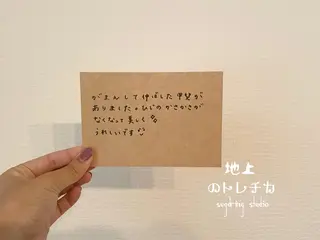 がまんして伸ばした甲斐が
ありました。ひじのかさかさが
なくなって美しく
うれしいです
地上
のトレチカ
studio